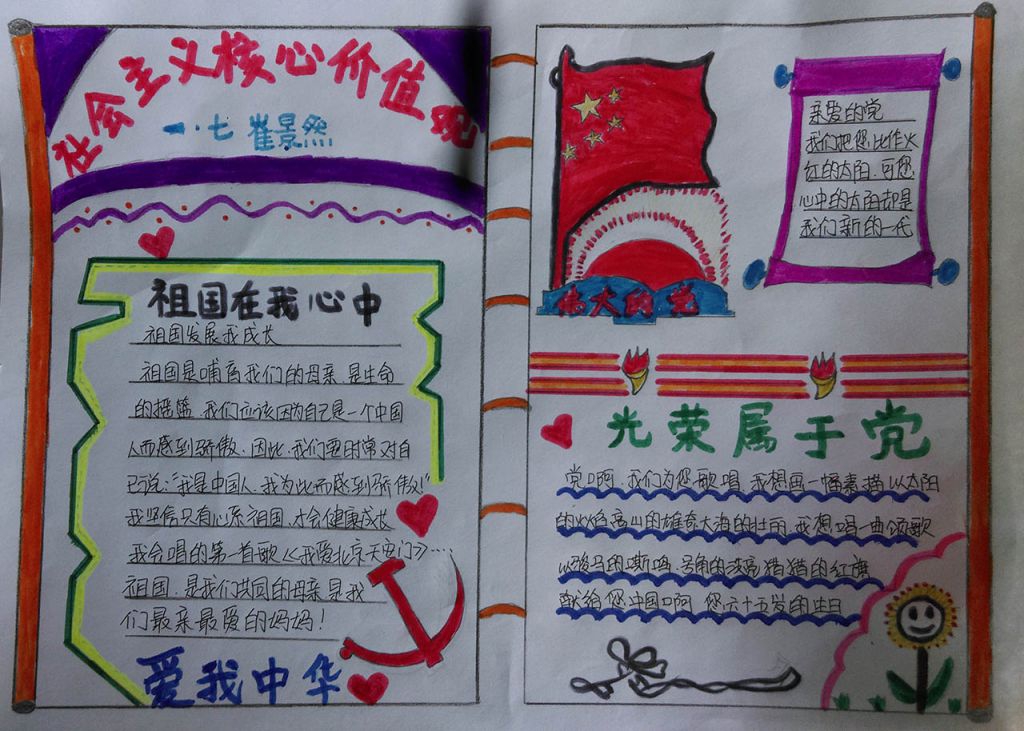 社会主义核心价值观
一·七 崔景然
祖国在我心中
祖国发展我成长
祖国是哺育我们的母亲,是生命
的摇篮,我们应该因为自己是一个中国
人而感到骄傲.因此,我们要时常对自
已说:"我是中国人,我为此而感到骄傲!"
我坚信只有心系祖国,才会健康成长
我会唱的第一首歌《我爱北京天安门》····
祖国,是我们共同的母亲是我
们最亲最爱的妈妈!
爱我中华
伟大的党
亲爱的党
我们把您比作火
红的太阳,可您
心中的太阳却是
我们新的一代
光荣属于党
党啊,我们为您歌唱,我想画一幅素描以太阳
的火焰高山的雄奇大海的壮丽,我想唱一曲颂歌
以骏马的嘶鸣,号角的嘹亮猎猎的红旗
献给您中国啊,您六十五岁的生日